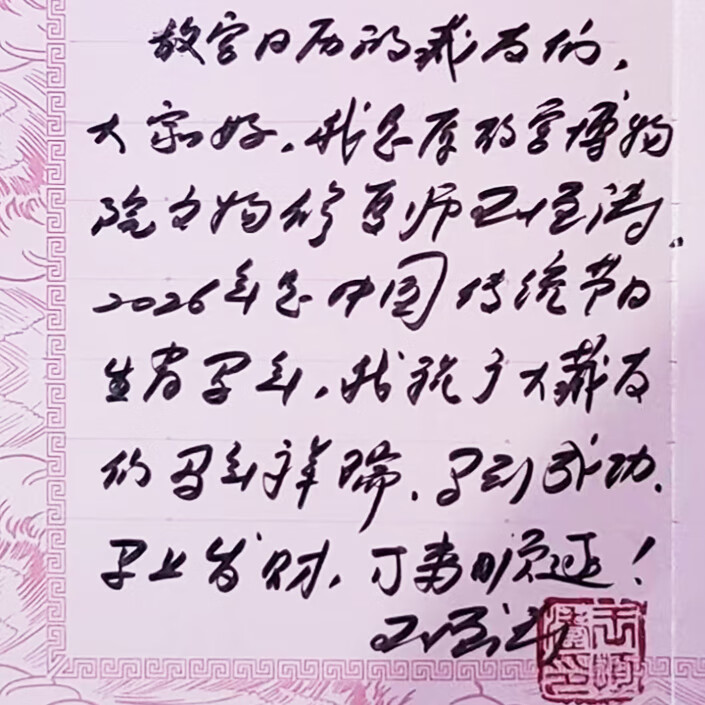 故宫日历的藏友们，
大家好，我是原故宫博物
院文物修复师王
2026年是中国传统节日
生肖马年，我祝广大藏友
们马年祥瑞，马到成功，
马上发财，万事顺遂！